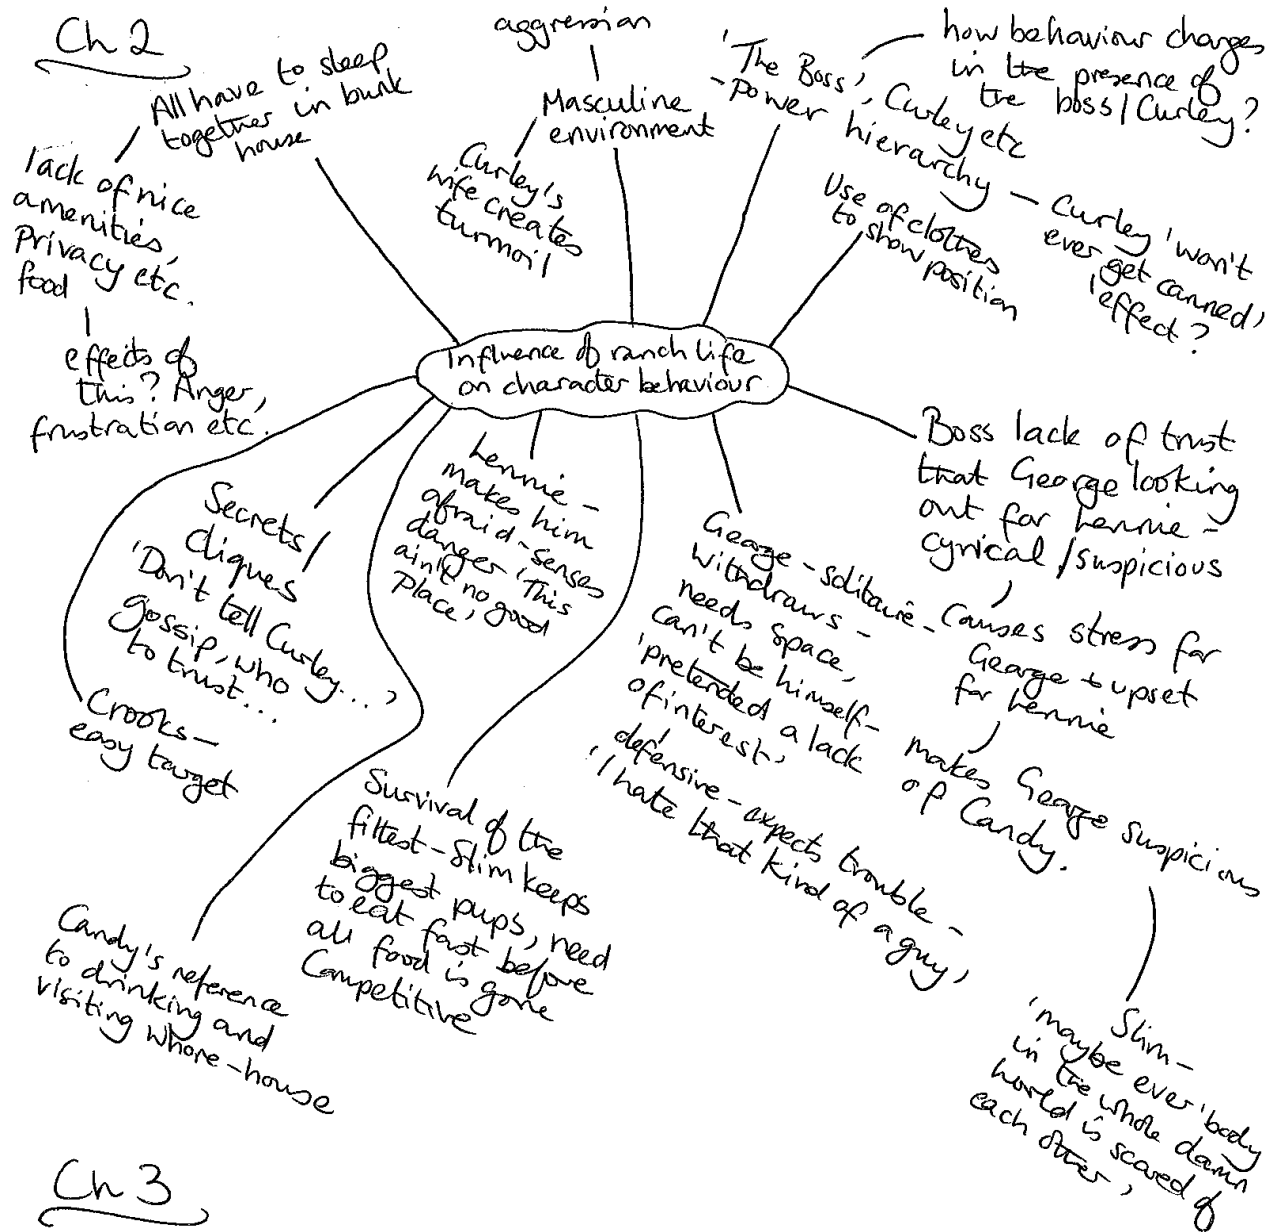 Ch 2
All have to sleep
together in bunk
house
lack of nice
amenities,
Privacy etc.
food
effects of
this? Anger,
frustration etc.
aggression
Masculine
environment
Curley's
wife creates
turmoil
'The Boss', Curley etc
- Power hierarchy
how behaviour changes
in the presence of
the boss/Curley?
Curley 'won't
ever get canned'
effect?
Use of clothes
to show position
Influence of ranch life
on character behaviour
Boss lack of trust
that George looking
out for Lennie -
cynical/suspicious
Causes stress for
George + upset
for Lennie
makes George suspicious
of Candy.
Slim -
'maybe ever'body
in the whole damn
world is scared of
each other'
George - solitaire -
withdraws -
needs space,
can't be himself -
'pretended a lack
of interest'
defensive - expects trouble -
'I hate that kind of a guy'
Lennie -
makes him
afraid - senses
danger 'This
ain't no good
place'
Survival of the
fittest - Slim keeps
biggest pups, need
to eat fast before
all food is gone
Competitive
Secrets/
cliques
'Don't tell Curley...'
gossip, who
to trust...
Crooks -
easy target
Candy's reference
to drinking and
visiting whore-house
Ch 3